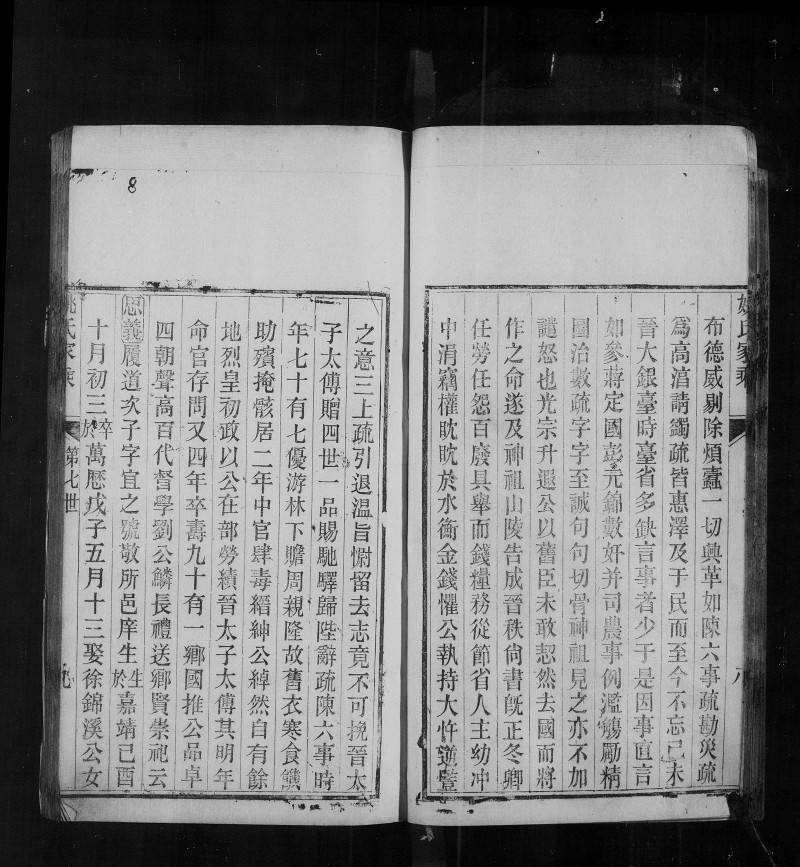 姚氏家乘
布德威剔除煩蠹一切興革如陳六事疏勘災疏
為高湻請蠲疏皆惠澤及于民而至今不忘己未
晉大銀臺時臺省多缺言事者少于是因事直言
如參蔣定國彭元錦數奸并司農事例濫觴勵精
圖治數疏字字至誠句句切骨神祖見之亦不加
譴怒也光宗升遐公以舊臣未敢恝然去國而將
作之命遂及神祖山陵告成晉秩尙書旣正冬卿
任勞任怨百廢具舉而錢糧務從節省人主幼冲
中涓竊權眈眈於水衡金錢懼公執持大忤逆豎
之意三上疏引退溫旨慰留去志竟不可挽晉太
子太傅贈四世一品賜馳驛歸陛辭疏陳六事時
年七十有七優游林下贍周親隆故舊衣寒食饑
助殯掩骸居二年中官肆毒縉紳公綽然自有餘
地烈皇初政以公在部勞績晉太子太傅其明年
命官存問又四年卒壽九十有一鄉國推公品卓
四朝聲高百代督學劉公鱗長禮送鄉賢崇祀云
思義履道次子字宜之號敬所邑庠生生於嘉靖己酉
十月初三卒於萬歷戊子五月十三娶徐錦溪公女
姚氏家乘
第七世
九
8